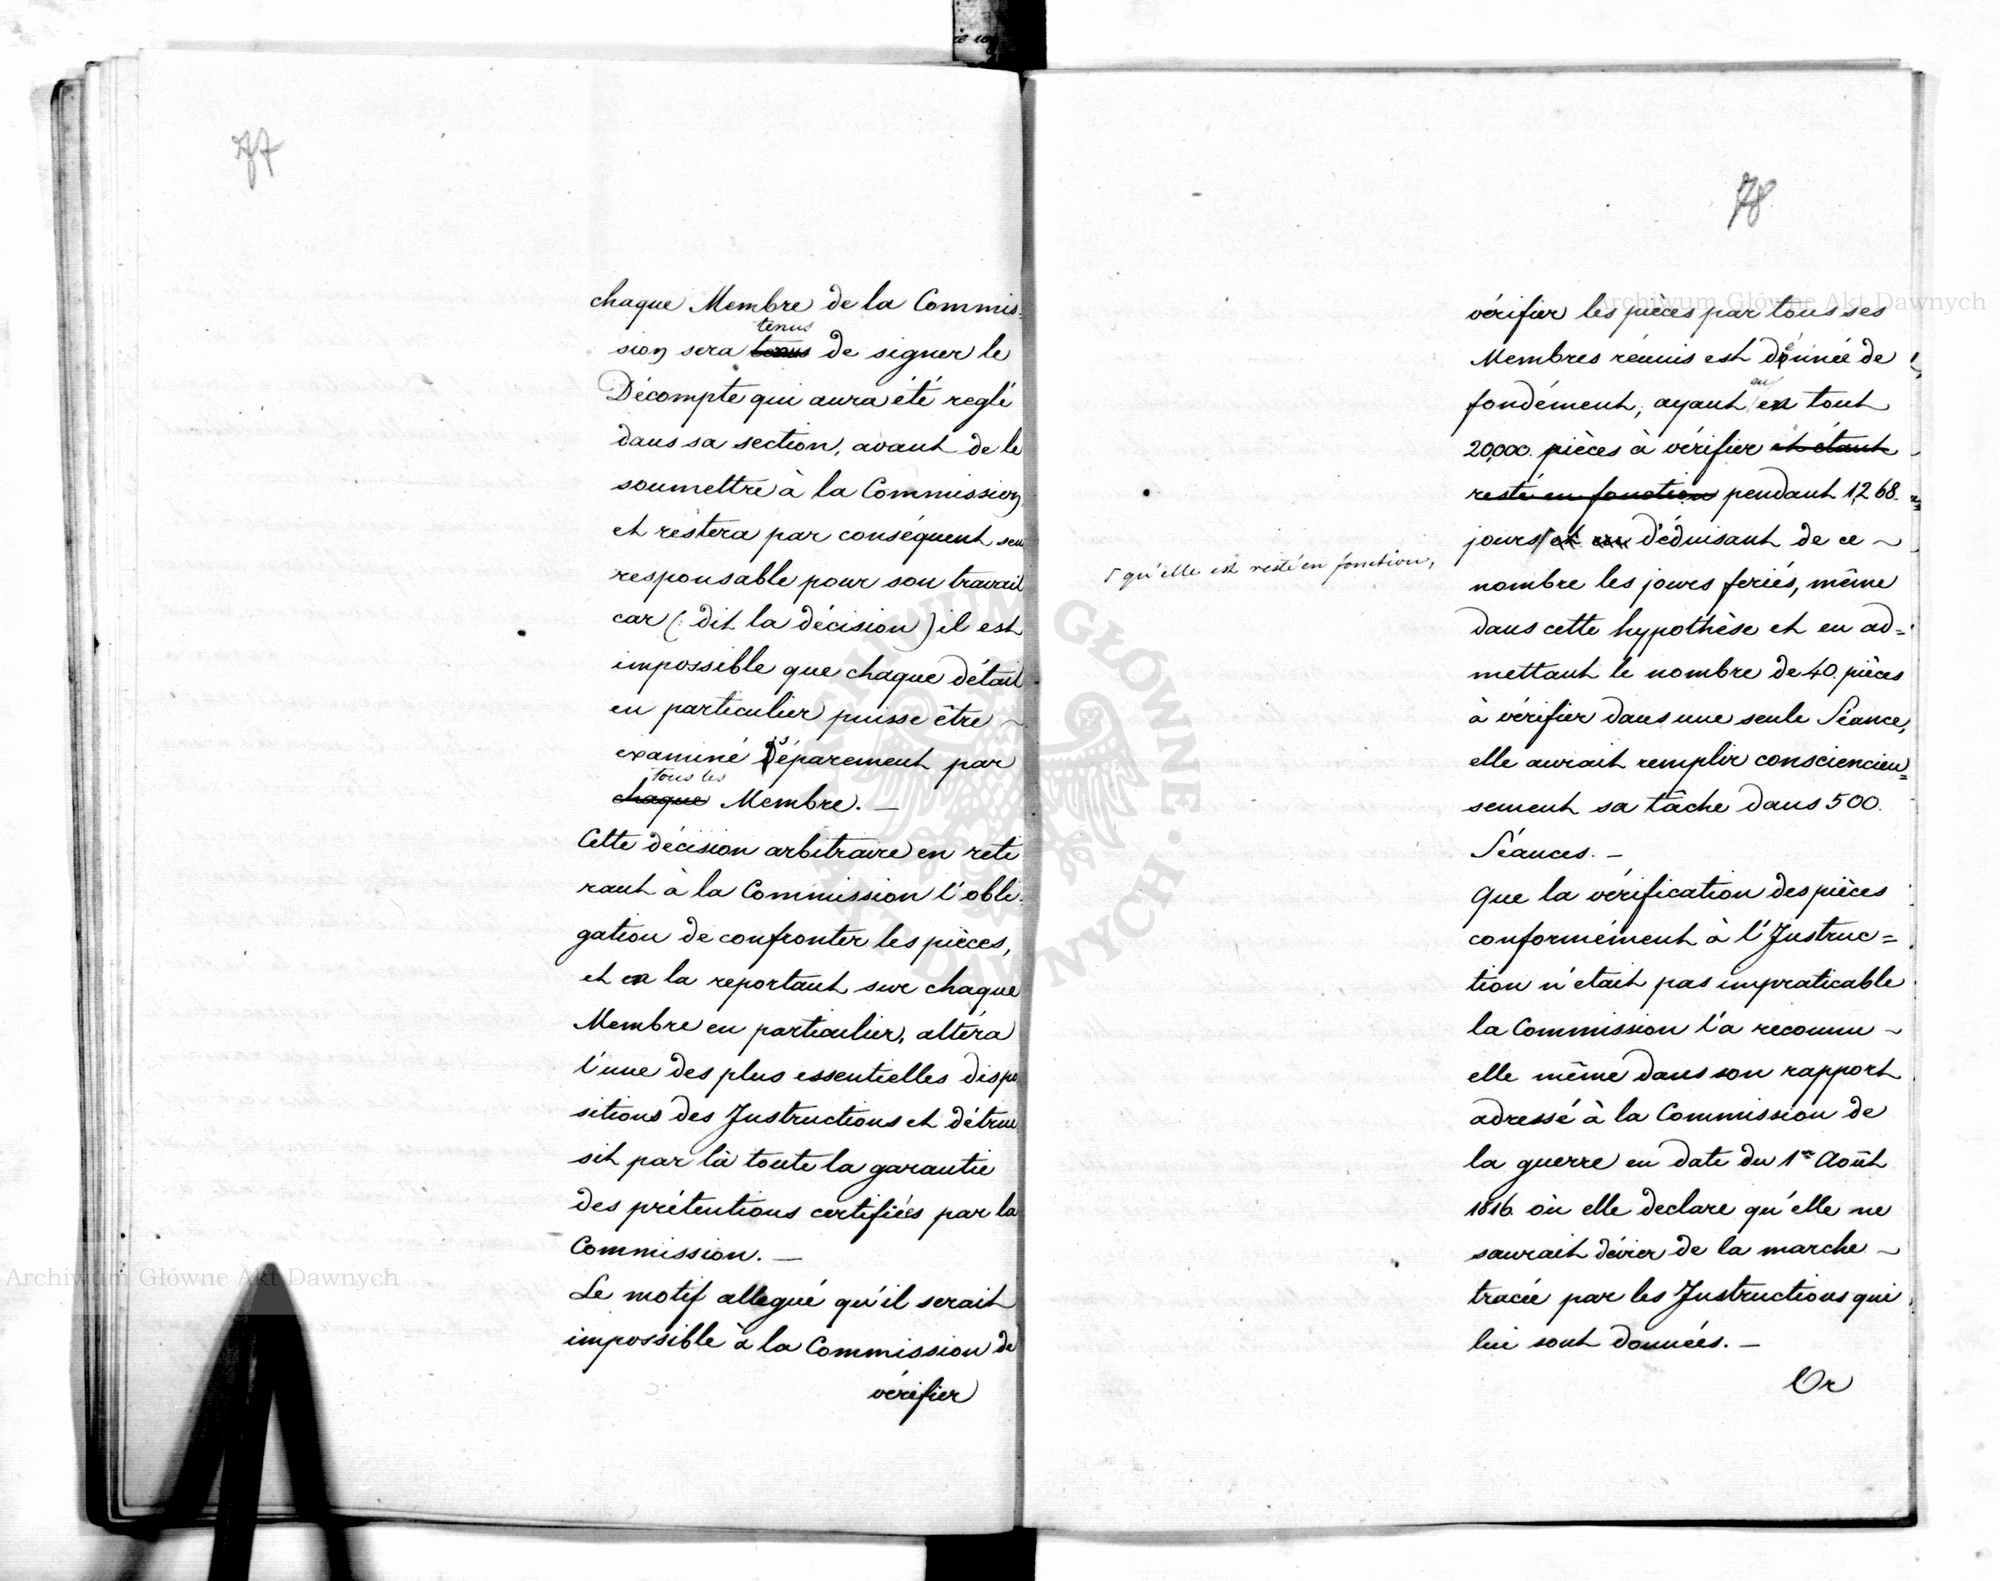 77
chaque Membre de la Commis=
tenus
sion sera tenus de signer le
Décompte qui aura été reglé
dans sa section, avant de le
soumettre à la Commission,
et restera par conséquent seu
responsable pour son travail
car (: dit la décision) il est
impossible que chaque détail
en particulier puisse être ~
examiné séparement par
tous les
chaque Membre. —
Cette décision arbitraire en reti
rant à la Commission l'obli=
gation de confronter les pièces,
et en la reportant sur chaque
Membre en particulier, altéra
l'une des plus essentielles dispo
sitions des Instructions et détrui
sit par là toute la garantie
des prétentions certifiées par la
Commission. —
Le motif allegué qu'il serait
impossible à la Commission de
vérifier
78
vérifier les pièces par tous ses
Membres réunis est dénuée de
fondément, ayant eu tout
eu
20,000. pièces à vérifier et étant
resté en fonction pendant 1,268.
jours et en déduisant de ce ~
qu'elle est resté en fonction,
nombre les jours feriés, même
dans cette hypothèse et en ad=
mettant le nombre de 40. pièces
à vérifier dans une seule Séance,
elle aurait remplir consciencieu=
sement sa tâche dans 500.
Séances. —
Que la vérification des pièces
conformément à l'Instruc=
tion n'etait pas impraticable
la Commission l'a reconnu ~
elle même dans son rapport
adressé à la Commission de
la guerre en date du 1er Août
1816. où elle declare qu'elle ne
saurait dévier de la marche ~
tracée par les Instructions qui
lui sont données. —
Or
Archiwum Główne Akt Dawnych
Archiwum Główne Akt Dawnych
ARCHIWUM GŁÓWNE AKT DAWNYCH